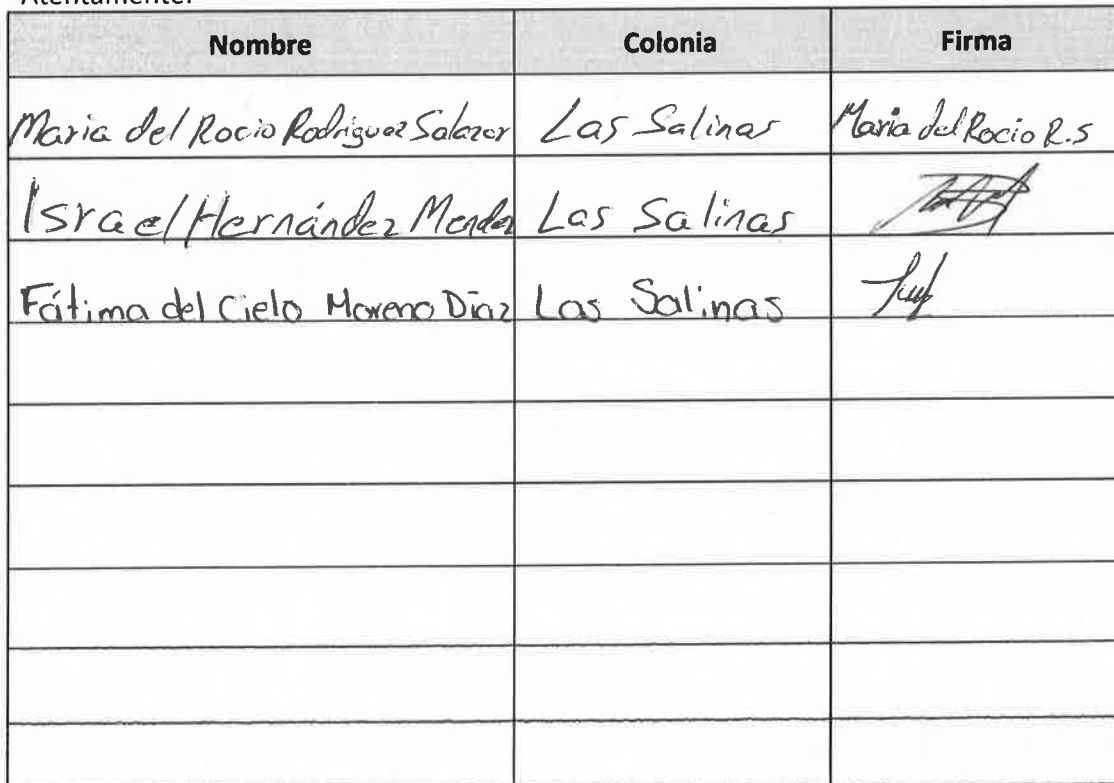 Atentamente.
Nombre Colonia Firma
Maria del Rocio Rodriguez Salazar Las Salinas Maria del Rocio R.S
Israel Hernández Mendez Las Salinas
Fátima del Cielo Moreno Díaz Las Salinas